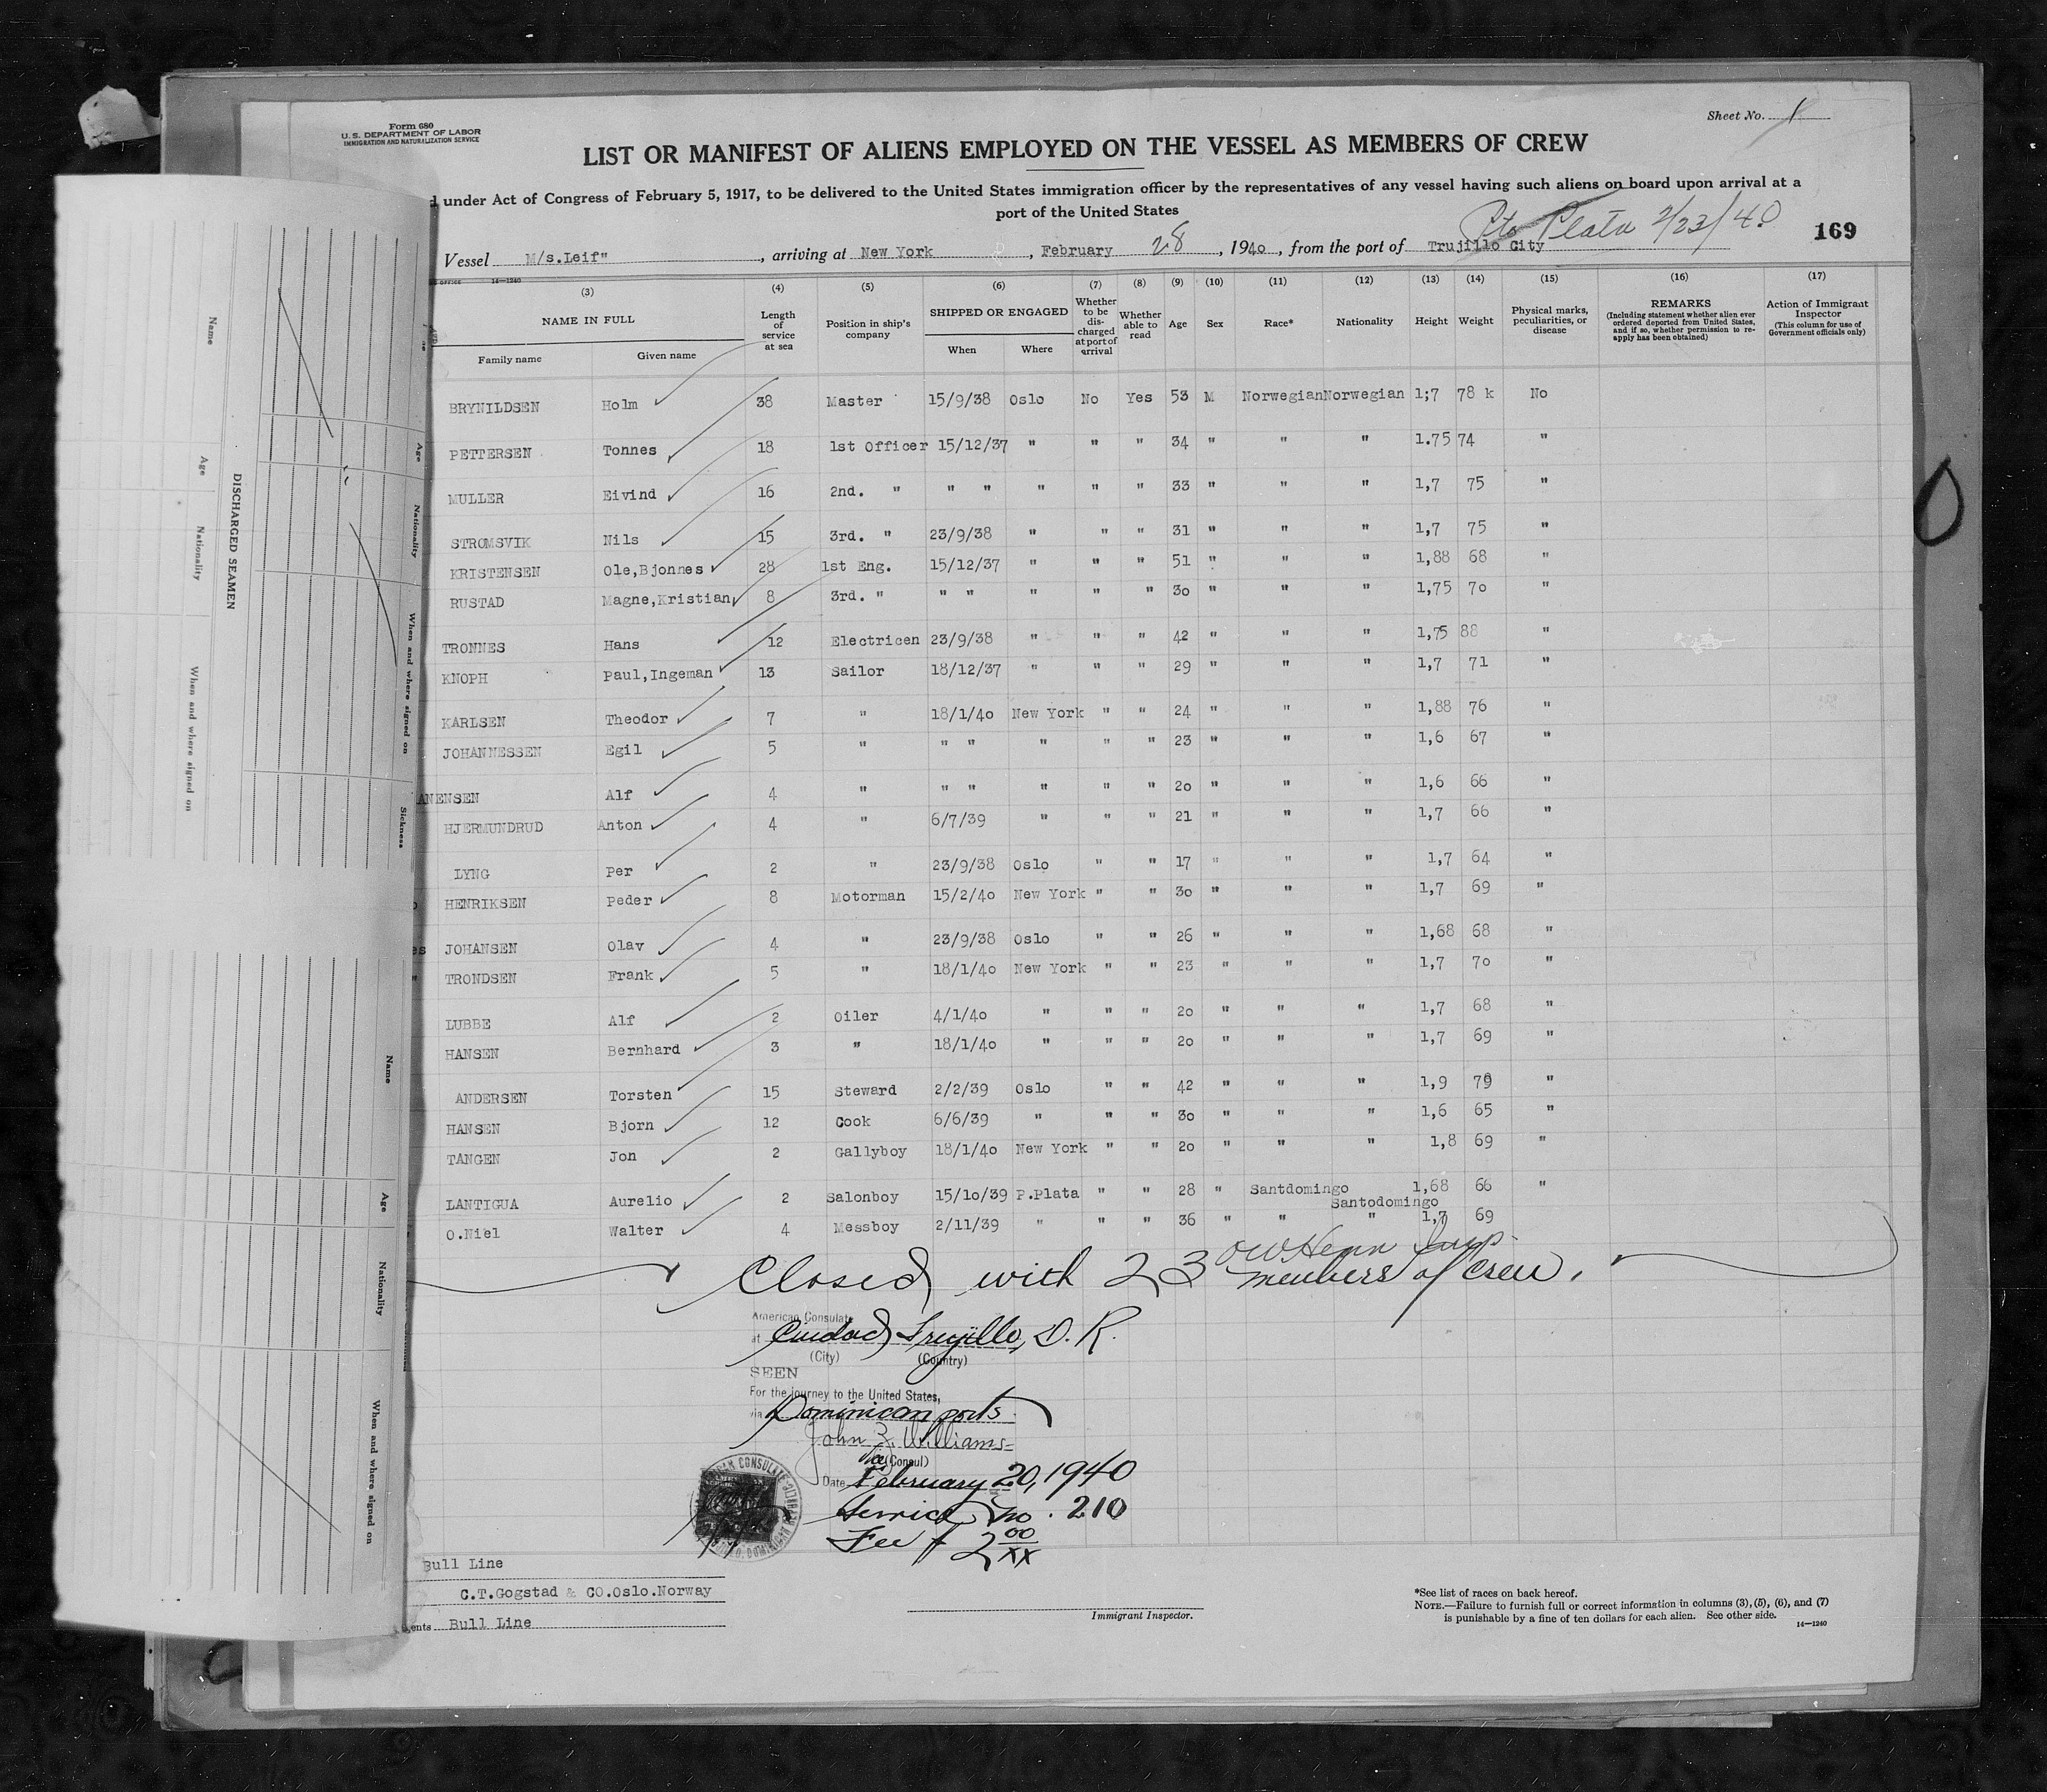 Form 680
U.S. DEPARTMENT OF LABOR
IMMIGRATION AND NATURALIZATION SERVICE
Sheet No. 1
LIST OR MANIFEST OF ALIENS EMPLOYED ON THE VESSEL AS MEMBERS OF CREW
under Act of Congress of February 5, 1917, to be delivered to the United States immigration officer by the representatives of any vessel having such aliens on board upon arrival at a
port of the United States
Pto Plata 2/23/40
169
Vessel M/s.Leif" , arriving at New York , February 28 , 1940 , from the port of Trujillo City
14—1240
(3) (4) (5) (6) (7) (8) (9) (10) (11) (12) (13) (14) (15) (16) (17)
NAME IN FULL
Family name Given name
Length of service at sea
Position in ship's company
SHIPPED OR ENGAGED
When Where
Whether to be discharged at port of arrival
Whether able to read
Age Sex Race* Nationality Height Weight
Physical marks, peculiarities, or disease
REMARKS
(Including statement whether alien ever ordered deported from United States, and if so, whether permission to reapply has been obtained)
Action of Immigrant Inspector
(This column for use of Government officials only)
BRYNILDSEN Holm 38 Master 15/9/38 Oslo No Yes 53 M Norwegian Norwegian 1;7 78 k No
PETTERSEN Tonnes 18 1st Officer 15/12/37 " " " 34 " " " 1.75 74 "
MULLER Eivind 16 2nd. " " " " " " 33 " " " 1,7 75 "
STROMSVIK Nils 15 3rd. " 23/9/38 " " " 31 " " " 1,7 75 "
KRISTENSEN Ole,Bjonnes 28 1st Eng. 15/12/37 " " " 51 " " " 1,88 68 "
RUSTAD Magne,Kristian 8 3rd. " " " " " " 30 " " " 1,75 70 "
TRONNES Hans 12 Electricen 23/9/38 " " " 42 " " " 1,75 88 "
KNOPH Paul,Ingeman 13 Sailor 18/12/37 " " " 29 " " " 1,7 71 "
KARLSEN Theodor 7 " 18/1/40 New York " " 24 " " " 1,88 76 "
JOHANNESSEN Egil 5 " " " " " " 23 " " " 1,6 67 "
ANENSEN Alf 4 " " " " " " 20 " " " 1,6 66 "
HJERMUNDRUD Anton 4 " 6/7/39 " " " 21 " " " 1,7 66 "
LYNG Per 2 " 23/9/38 Oslo " " 17 " " " 1,7 64 "
HENRIKSEN Peder 8 Motorman 15/2/40 New York " " 30 " " " 1,7 69 "
JOHANSEN Olav 4 " 23/9/38 Oslo " " 26 " " " 1,68 68 "
TRONDSEN Frank 5 " 18/1/40 New York " " 23 " " " 1,7 70 "
LUBBE Alf 2 Oiler 4/1/40 " " " 20 " " " 1,7 68 "
HANSEN Bernhard 3 " 18/1/40 " " " 20 " " " 1,7 69 "
ANDERSEN Torsten 15 Steward 2/2/39 Oslo " " 42 " " " 1,9 79 "
HANSEN Bjorn 12 Cook 6/6/39 " " " 30 " " " 1,6 65 "
TANGEN Jon 2 Gallyboy 18/1/40 New York " " 20 " " " 1,8 69 "
LANTIGUA Aurelio 2 Salonboy 15/10/39 P.Plata " " 28 " Santdomingo Santodomingo 1,68 66 "
O.Niel Walter 4 Messboy 2/11/39 " " " 36 " " " 1,7 69
Closed with 23 members of crew.
American Consulate
at Ciudad Trujillo, D. R.
(City) (Country)
SEEN
For the journey to the United States,
via Dominican ports
John Z. Williams
Vice (Consul)
Date February 20, 1940
Service no. 210
Fee $ 2 00/xx
Bull Line
C.T.Gogstad & CO.Oslo.Norway
Bull Line
Immigrant Inspector.
*See list of races on back hereof.
NOTE.—Failure to furnish full or correct information in columns (3), (5), (6), and (7)
is punishable by a fine of ten dollars for each alien. See other side.
14—1240
DISCHARGED SEAMEN
Name
Age
Nationality
When and where signed on
Age
Nationality
When and where signed on
Sickness
Name
Age
Nationality
When and where signed on